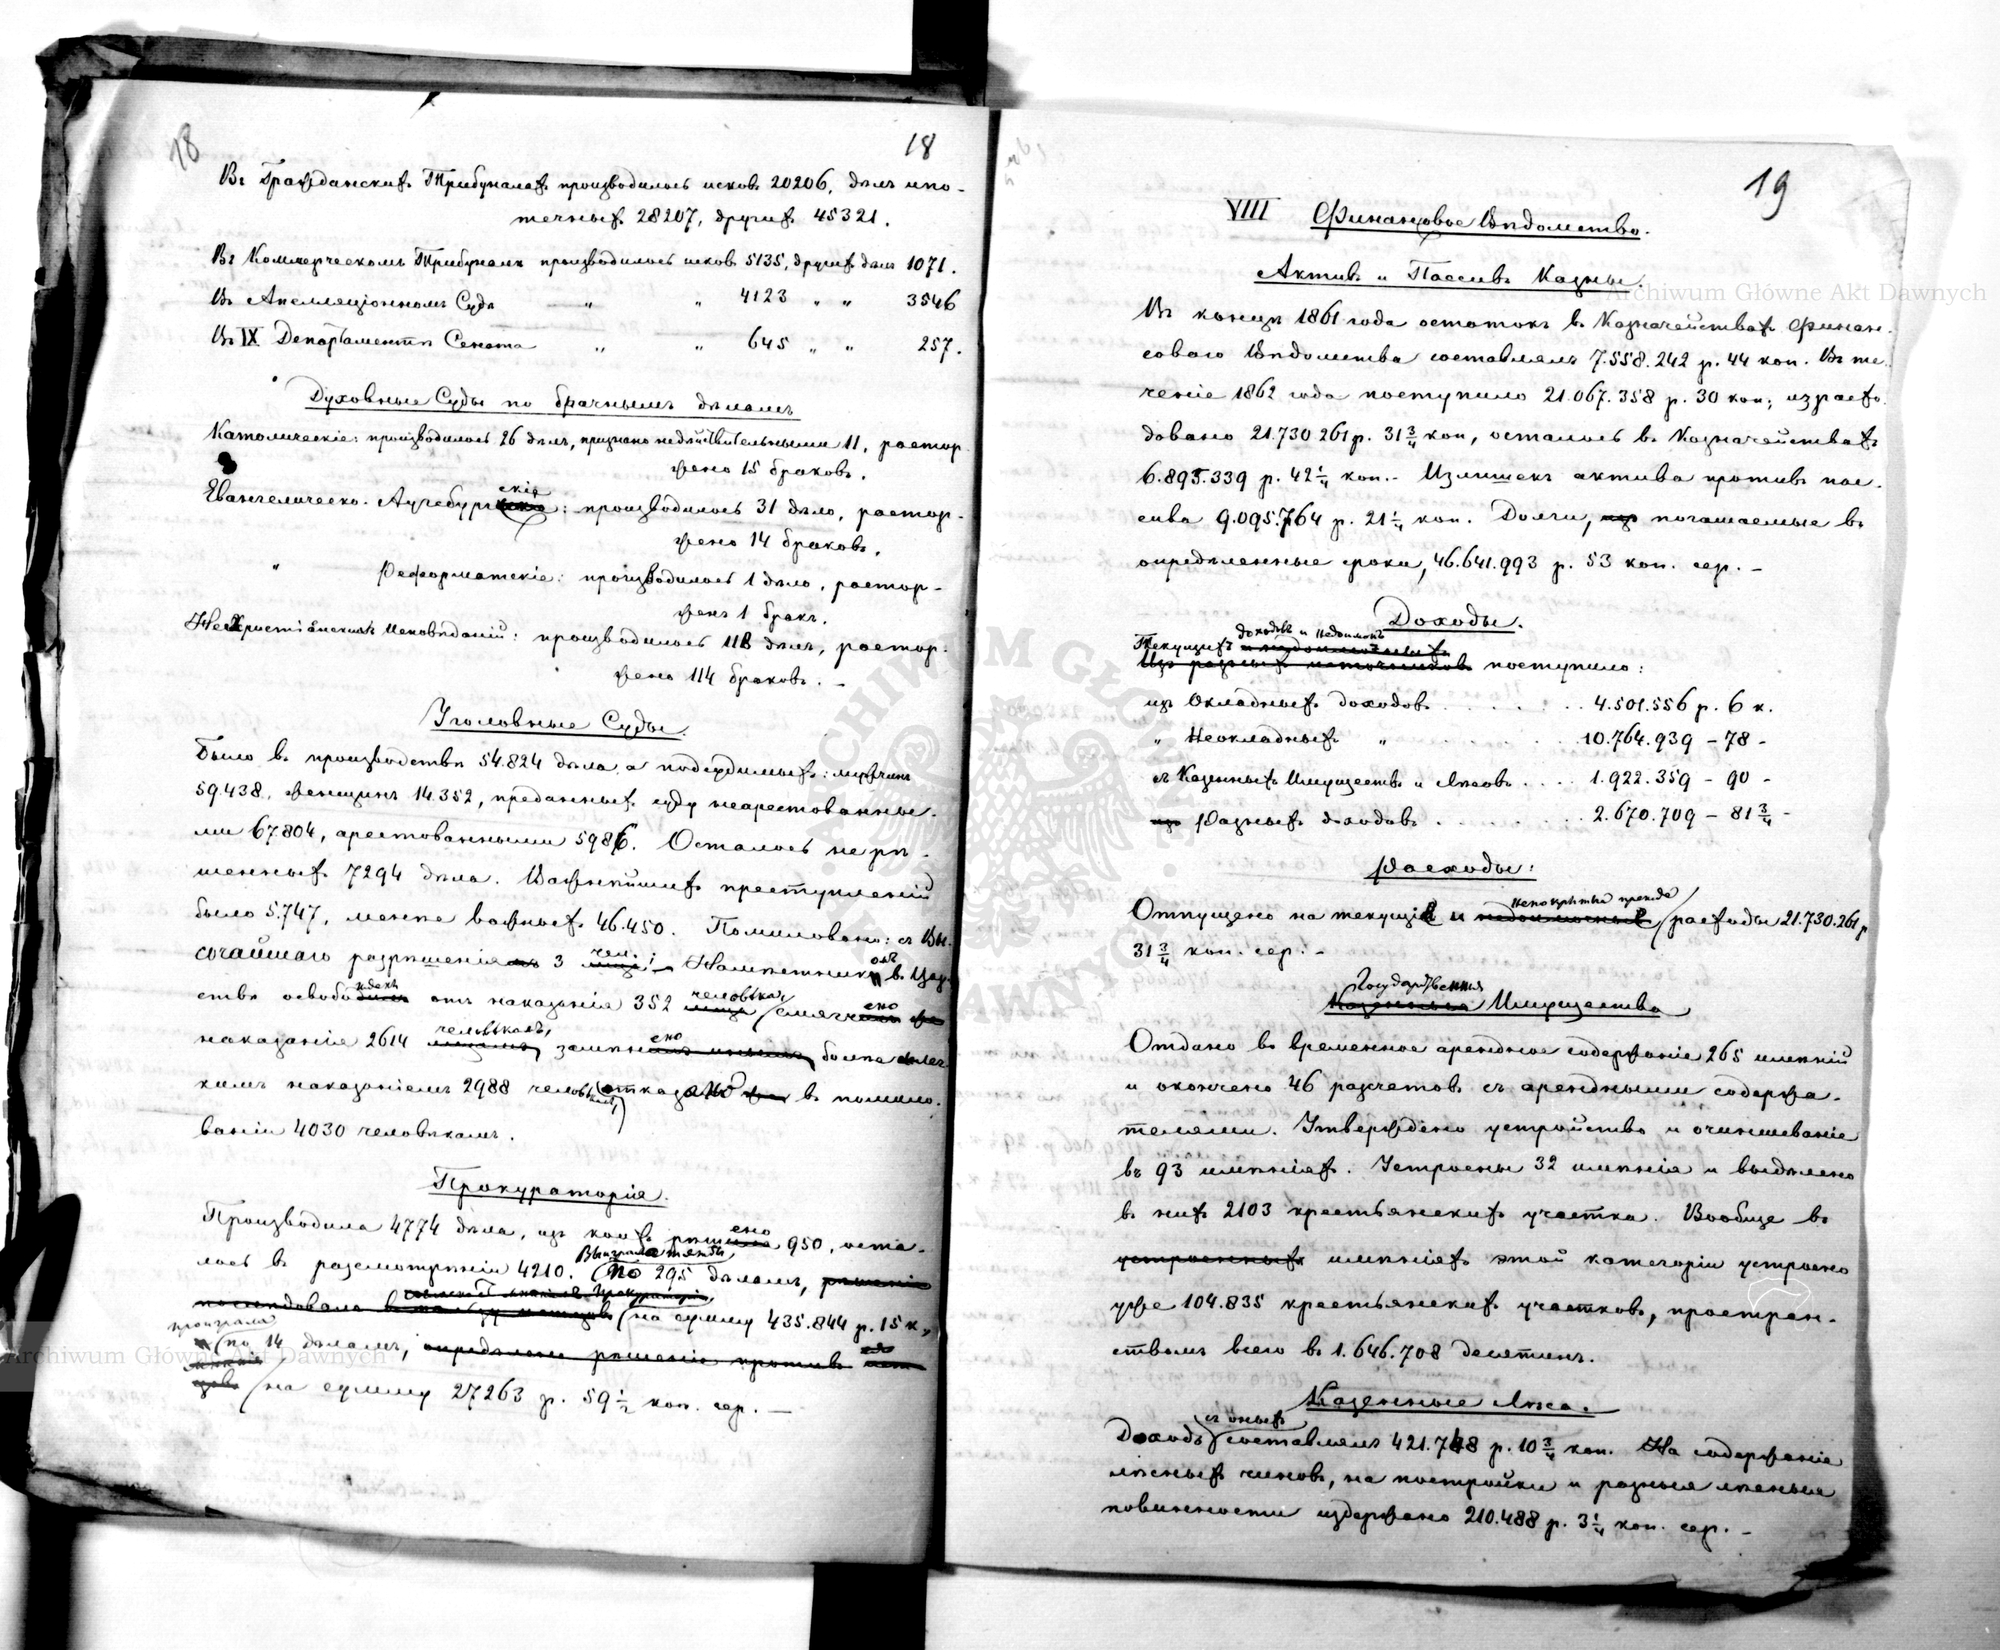 18
18
Въ Гражданскихъ Трибуналахъ производилось исковъ 20206, дѣлъ ипо-
течныхъ 28207, другихъ 45321.
Въ Коммерческомъ Трибуналѣ производилось исковъ 5135, другихъ дѣлъ 1071.
Въ Апелляціонномъ Судѣ " " 4123 " " 3546
Въ IX Департаментѣ Сената " " 645 " " 257.
Духовные Суды по брачнымъ дѣламъ
Католическіе: производилось 26 дѣлъ, признано недѣйствительными 11, растор-
жено 15 браковъ.
скіе
Евангелическо-Аугсбург: производилось 31 дѣло, растор-
жено 14 браковъ.
" Реформатскіе: производилось 1 дѣло, растор-
женъ 1 бракъ.
НеХристіанскихъ Исповѣданій: производилось 118 дѣлъ, растор-
жено 114 браковъ. –
Уголовные Суды.
Было въ производствѣ 54.824 дѣла, а подсудимыхъ: мужчинъ
59.438, женщинъ 14.352, преданныхъ суду неарестованны-
ми 67.804, арестованными 5986. Осталось нерѣ-
шенныхъ 7294 дѣла. Важнѣйшихъ преступленій
было 5.747, менѣе важныхъ 46.450. Помиловано: съ Вы-
чел.
сочайшаго разрѣшенія 3 ; Намѣстникомъ въ Цар-
ствѣ освобожденъ отъ наказанія 352 человѣка, смягчено
наказаніе 2614 человѣкамъ, замѣнено болѣе легкимъ
наказаніемъ 2988 человѣкамъ, отказано въ помило-
ваніи 4030 человѣкамъ.
Прокураторія.
Производила 4774 дѣла, изъ коихъ рѣшено 950, оста-
Выиграла тяжбы
лось въ разсмотрѣніи 4210. По 295 дѣламъ,
на сумму 435.844 р. 15 к,
проиграла
по 14 дѣламъ,
на сумму 27263 р. 59 1/2 коп. сер. —
19
VIII Финансовое Вѣдомство.
Активъ и Пассивъ Казны.
Въ концѣ 1861 года остатокъ въ Казначействахъ Финан-
соваго Вѣдомства составлялъ 7.558.242 р. 44 коп. Въ те-
ченіе 1862 года поступило 21.067.358 р. 30 коп; израсхо-
довано 21.730.261 р. 31 3/4 коп, осталось въ Казначействахъ
6.895.339 р. 42 1/4 коп.- Излишекъ актива противъ пас-
сива 9.095.764 р. 21 1/4 коп. Долги, погашаемые въ
опредѣленные сроки, 46.641.993 р. 53 коп. сер. –
Доходы.
доходовъ и недоимокъ
Текущихъ
Изъ разныхъ источниковъ поступило:
изъ Окладныхъ доходовъ . . . . 4.501.556 р. 6 к.
" Неокладныхъ " . . . . 10.764.939 – 78 –
съ Казенныхъ Имуществъ и Лѣсовъ . . . . 1.922.359 – 90 –
изъ Разныхъ доходовъ . . . . 2.670.709 – 81 3/4 –
Расходы:
непокрытые прежде
Отпущено на текущіе и расходы 21.730.261 р
31 3/4 коп. сер. –
Государственныя
Казенныя Имущества
Отдано въ временное арендное содержаніе 265 имѣній
и окончено 46 разчетовъ съ арендными содержа-
телями. Утверждено устройство и очиншеваніе
въ 93 имѣніяхъ. Устроены 32 имѣнія и выдѣлено
въ нихъ 2103 крестьянскихъ участка. Вообще въ
устроенныхъ имѣніяхъ этой категоріи устроено
уже 104.835 крестьянскихъ участковъ, простран-
ствомъ всего въ 1.646.708 десятинъ.
Казенные Лѣса.
съ оныхъ
Доходъ составлялъ 421.748 р. 10 3/4 коп. На содержаніе
лѣсныхъ чиновъ, на постройки и разныя лѣсныя
повинности издержано 210.488 р. 3 1/4 коп. сер. –
Archiwum Główne Akt Dawnych
Archiwum Główne Akt Dawnych
ARCHIWUM GŁÓWNE AKT DAWNYCH